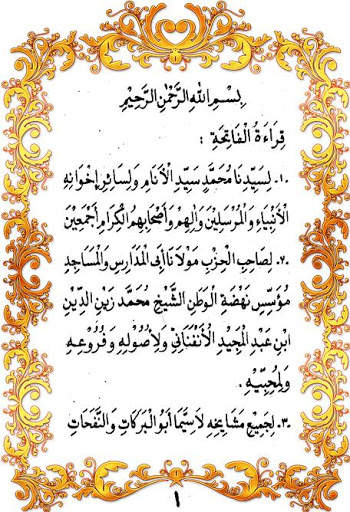 بِسْمِ اللهِ الرَّحْمٰنِ الرَّحِيْمِ
قِرَاءَةُ الْفَاتِحَةِ :
١٠ لِسَيِّدِنَا مُحَمَّدٍ سَيِّدِ الْأَنَامِ وَلِسَائِرِ إِخْوَانِهِ
الْأَنْبِيَاءِ وَالْمُرْسَلِيْنَ وَاٰلِهِمْ وَأَصْحَابِهِمُ الْكِرَامِ أَجْمَعِيْنَ
٢٠ لِصَاحِبِ الْحِزْبِ مَوْلَانَا أَبِى الْمَدَارِسِ وَالْمَسَاجِدِ
مُؤَسِّسِ نَهْضَةِ الْوَطَنِ الشَّيْخِ مُحَمَّد زَيْنِ الدِّيْنِ
ابْنِ عَبْدِ الْمَجِيْدِ الْأَنْفَنَانِيِّ وَلِأُصُوْلِهِ وَفُرُوْعِهِ
وَلِمُحِبِّيْهِ .
٣٠ لِجَمِيْعِ مَشَايِخِهِ لَاسِيَّمَا أَبُو الْبَرَكَاتِ وَالنَّفَحَاتِ
١